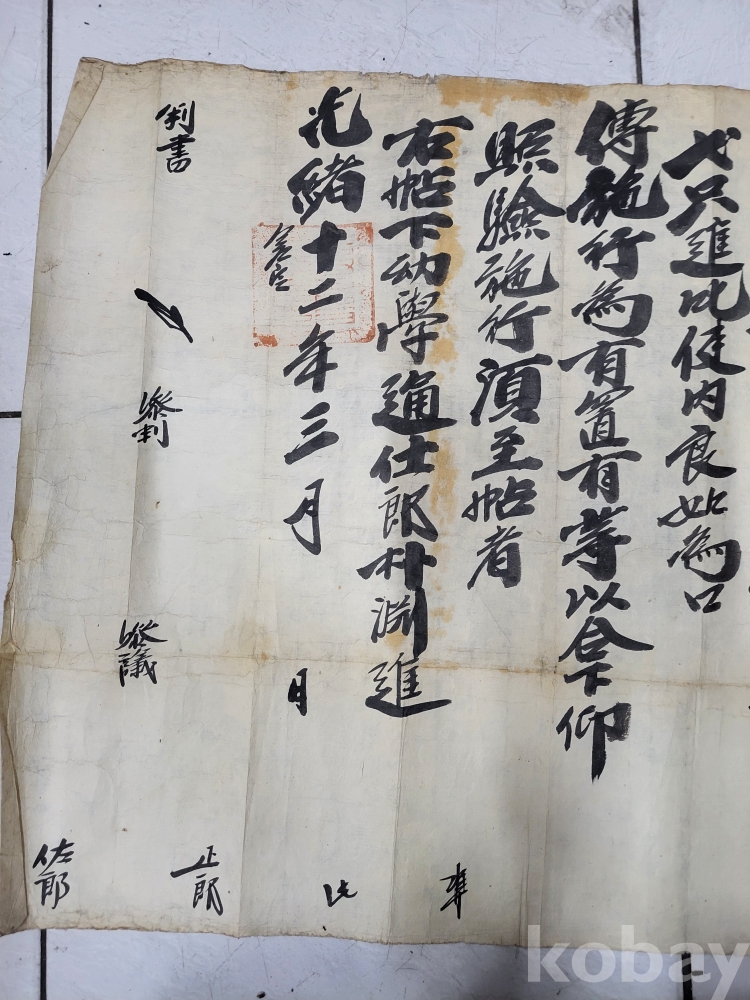 弋只進叱使內良如為口
傳施行為有置有等以合下仰
照驗施行須至帖者
右帖下幼學通仕郎朴淵進
光緒十二年三月 日
判書
參判
參議
正郎
佐郎
kobay